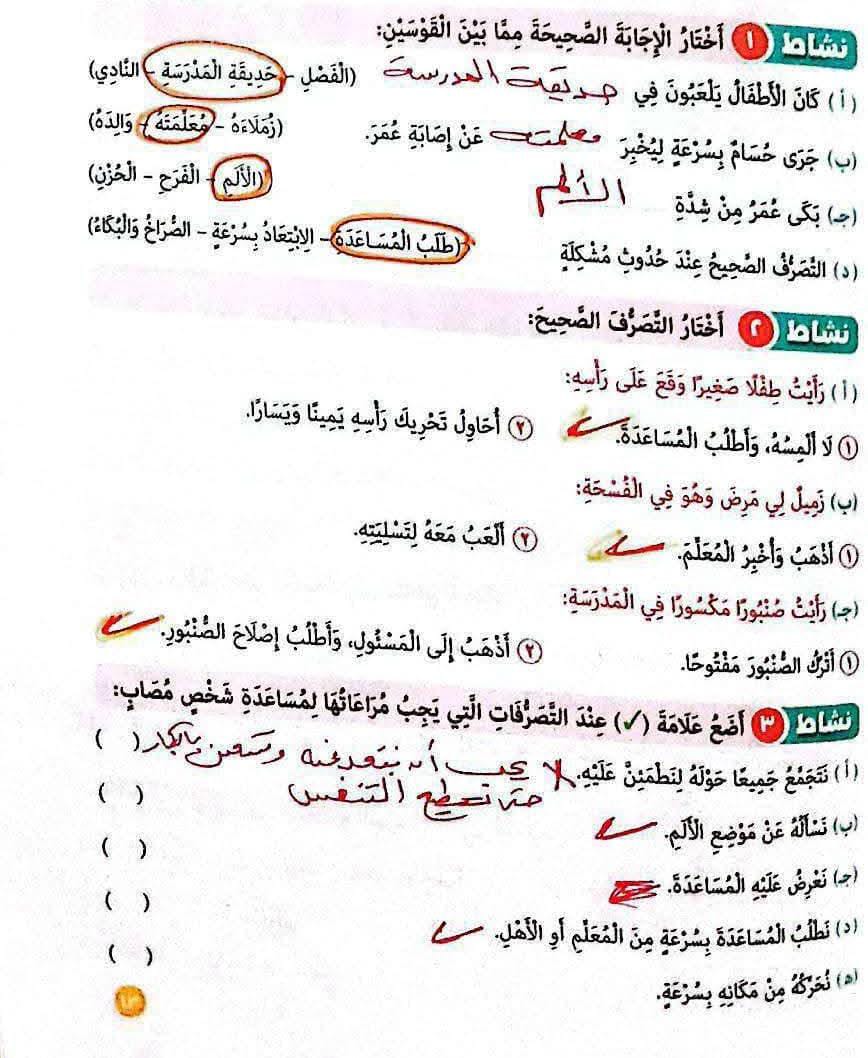 نشاط ١ أَخْتَارُ الْإِجَابَةَ الصَّحِيحَةَ مِمَّا بَيْنَ الْقَوْسَيْنِ:
(أ) كَانَ الْأَطْفَالُ يَلْعَبُونَ فِي حديقة المدرسة (الْفَصْلِ - حَدِيقَةِ الْمَدْرَسَةِ - النَّادِي)
(ب) جَرَى حُسَامٌ بِسُرْعَةٍ لِيُخْبِرَ معلمته عَنْ إِصَابَةِ عُمَرَ. (زُمَلَاءَهُ - مُعَلِّمَتَهُ - وَالِدَهُ)
(جـ) بَكَى عُمَرُ مِنْ شِدَّةِ الألم (الْأَلَمِ - الْفَرَحِ - الْحُزْنِ)
(د) التَّصَرُّفُ الصَّحِيحُ عِنْدَ حُدُوثِ مُشْكِلَةٍ (طَلَبُ الْمُسَاعَدَةِ - الِابْتِعَادُ بِسُرْعَةٍ - الصُّرَاخُ وَالْبُكَاءُ)
نشاط ٢ أَخْتَارُ التَّصَرُّفَ الصَّحِيحَ:
(أ) رَأَيْتُ طِفْلًا صَغِيرًا وَقَعَ عَلَى رَأْسِهِ:
١ لَا أَلْمِسُهُ، وَأَطْلُبُ الْمُسَاعَدَةَ. ٢ أُحَاوِلُ تَحْرِيكَ رَأْسِهِ يَمِينًا وَيَسَارًا.
(ب) زَمِيلٌ لِي مَرِضَ وَهُوَ فِي الْفُسْحَةِ:
١ أَذْهَبُ وَأُخْبِرُ الْمُعَلِّمَ. ٢ أَلْعَبُ مَعَهُ لِتَسْلِيَتِهِ.
(جـ) رَأَيْتُ صُنْبُورًا مَكْسُورًا فِي الْمَدْرَسَةِ:
١ أَتْرُكُ الصُّنْبُورَ مَفْتُوحًا. ٢ أَذْهَبُ إِلَى الْمَسْئُولِ، وَأَطْلُبُ إِصْلَاحَ الصُّنْبُورِ.
نشاط ٣ أَضَعُ عَلَامَةَ (✓) عِنْدَ التَّصَرُّفَاتِ الَّتِي يَجِبُ مُرَاعَاتُهَا لِمُسَاعَدَةِ شَخْصٍ مُصَابٍ:
(أ) نَتَجَمَّعُ جَمِيعًا حَوْلَهُ لِنَطْمَئِنَّ عَلَيْهِ. يجب أن نبتعد عنه ونستعين بالكبار ( )
حتى يستطيع التنفس ( )
(ب) نَسْأَلُهُ عَنْ مَوْضِعِ الْأَلَمِ. ( )
(جـ) نَعْرِضُ عَلَيْهِ الْمُسَاعَدَةَ. ( )
(د) نَطْلُبُ الْمُسَاعَدَةَ بِسُرْعَةٍ مِنَ الْمُعَلِّمِ أَوِ الْأَهْلِ. ( )
(ه) نُحَرِّكُهُ مِنْ مَكَانِهِ بِسُرْعَةٍ.